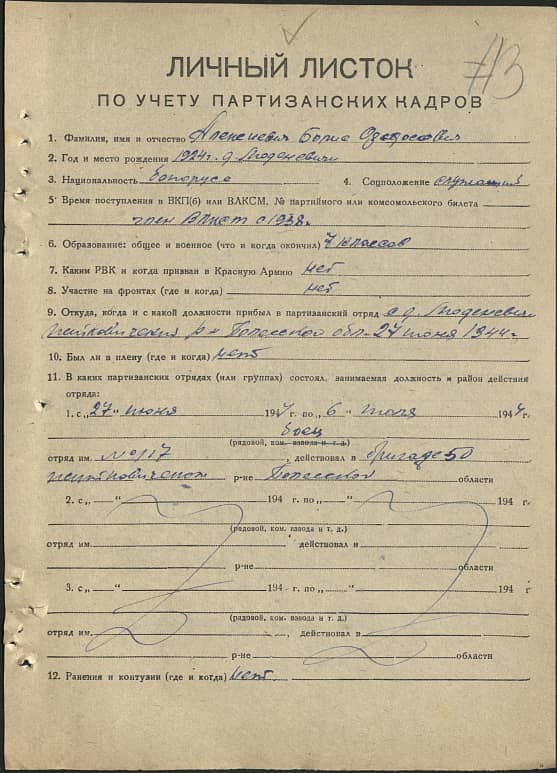 #13
ЛИЧНЫЙ ЛИСТОК
ПО УЧЕТУ ПАРТИЗАНСКИХ КАДРОВ
1. Фамилия, имя и отчество Алексиевич Борис
2. Год и место рождения 1924 г. д.
3. Национальность белорусс 4. Соцположение служащий
5. Время поступления в ВКП(б) или ВЛКСМ, № партийного или комсомольского билета
член с 1938 г
6. Образование: общее и военное (что и когда окончил) 7 классов
7. Каким РВК и когда призван в Красную Армию нет
8. Участие на фронтах (где и когда) нет
9. Откуда, когда и с какой должности прибыл в партизанский отряд с д.
р-н Полесской обл. 27 июня 1944 г
10. Был ли в плену (где и когда) нет
11. В каких партизанских отрядах (или группах) состоял, занимаемая должность и район действия
отряда:
1. с „27" июня 1944 г. по „6" июля 1944 г.
боец
(рядовой, ком. взвода и т. д.)
отряд им. № 117, действовал в бригаде 50
Житковичском р-не Полесской области
2. с „ " 194 г. по „ " 194 г.
(рядовой, ком. взвода и т. д.)
отряд им. действовал в
р-не области
3. с „ " 194 г. по „ " 194 г.
(рядовой, ком. взвода и т. д.)
отряд им. , действовал в
р-не области
12. Ранения и контузии (где и когда) нет.